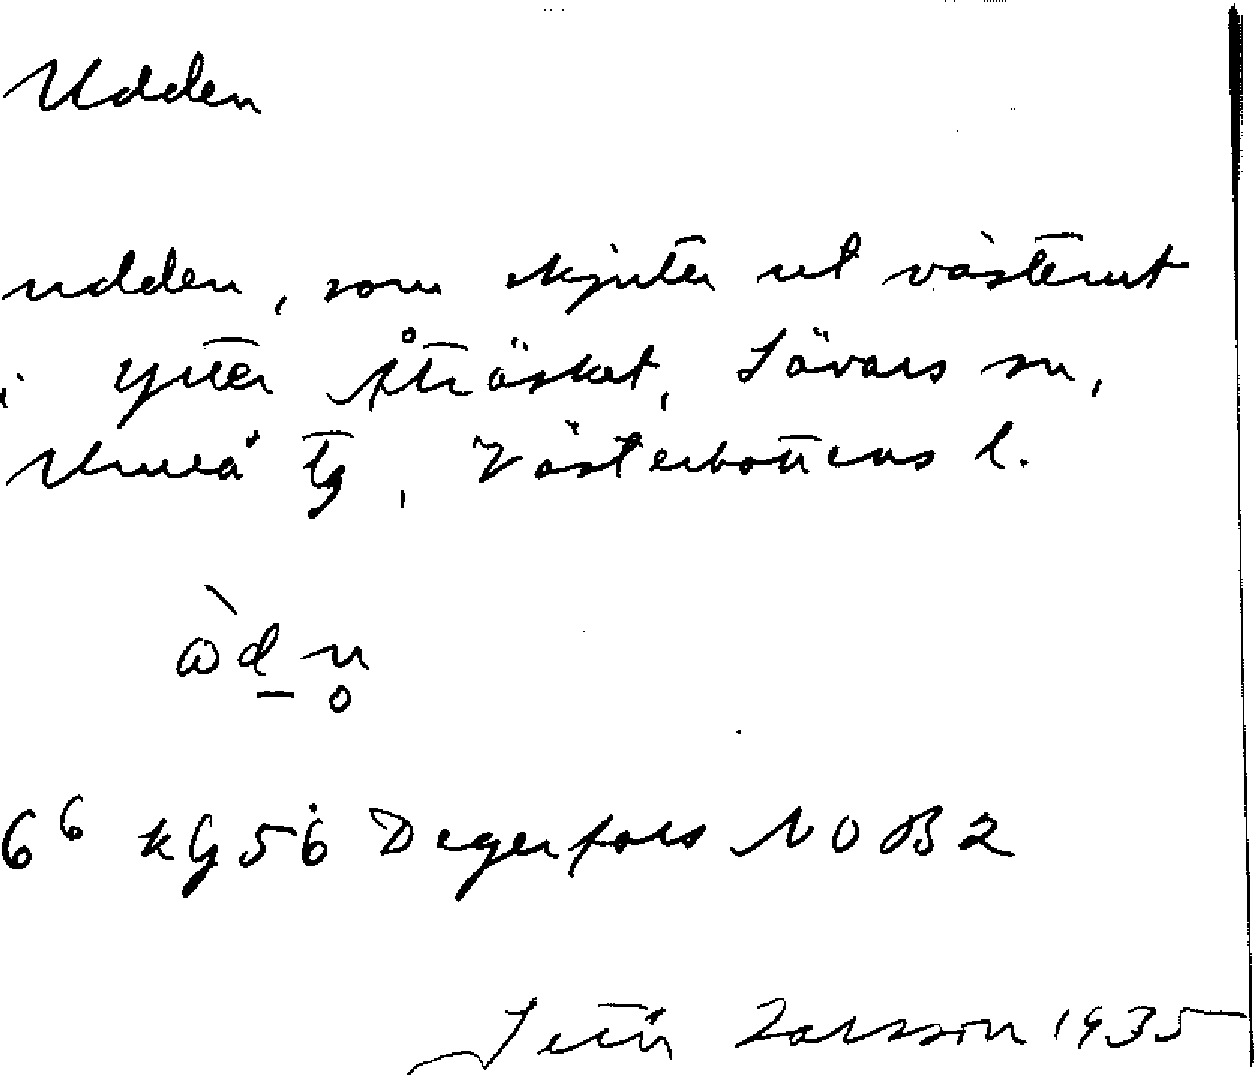 Udden
udden, som skjuter ut västerut
i Ytter Åträsket, Sävars sn,
Umeå tg, Västerbottens l.
ὼd̲ n̥
6⁶ kg 56 Degerfors NO B2
Larsson 1935